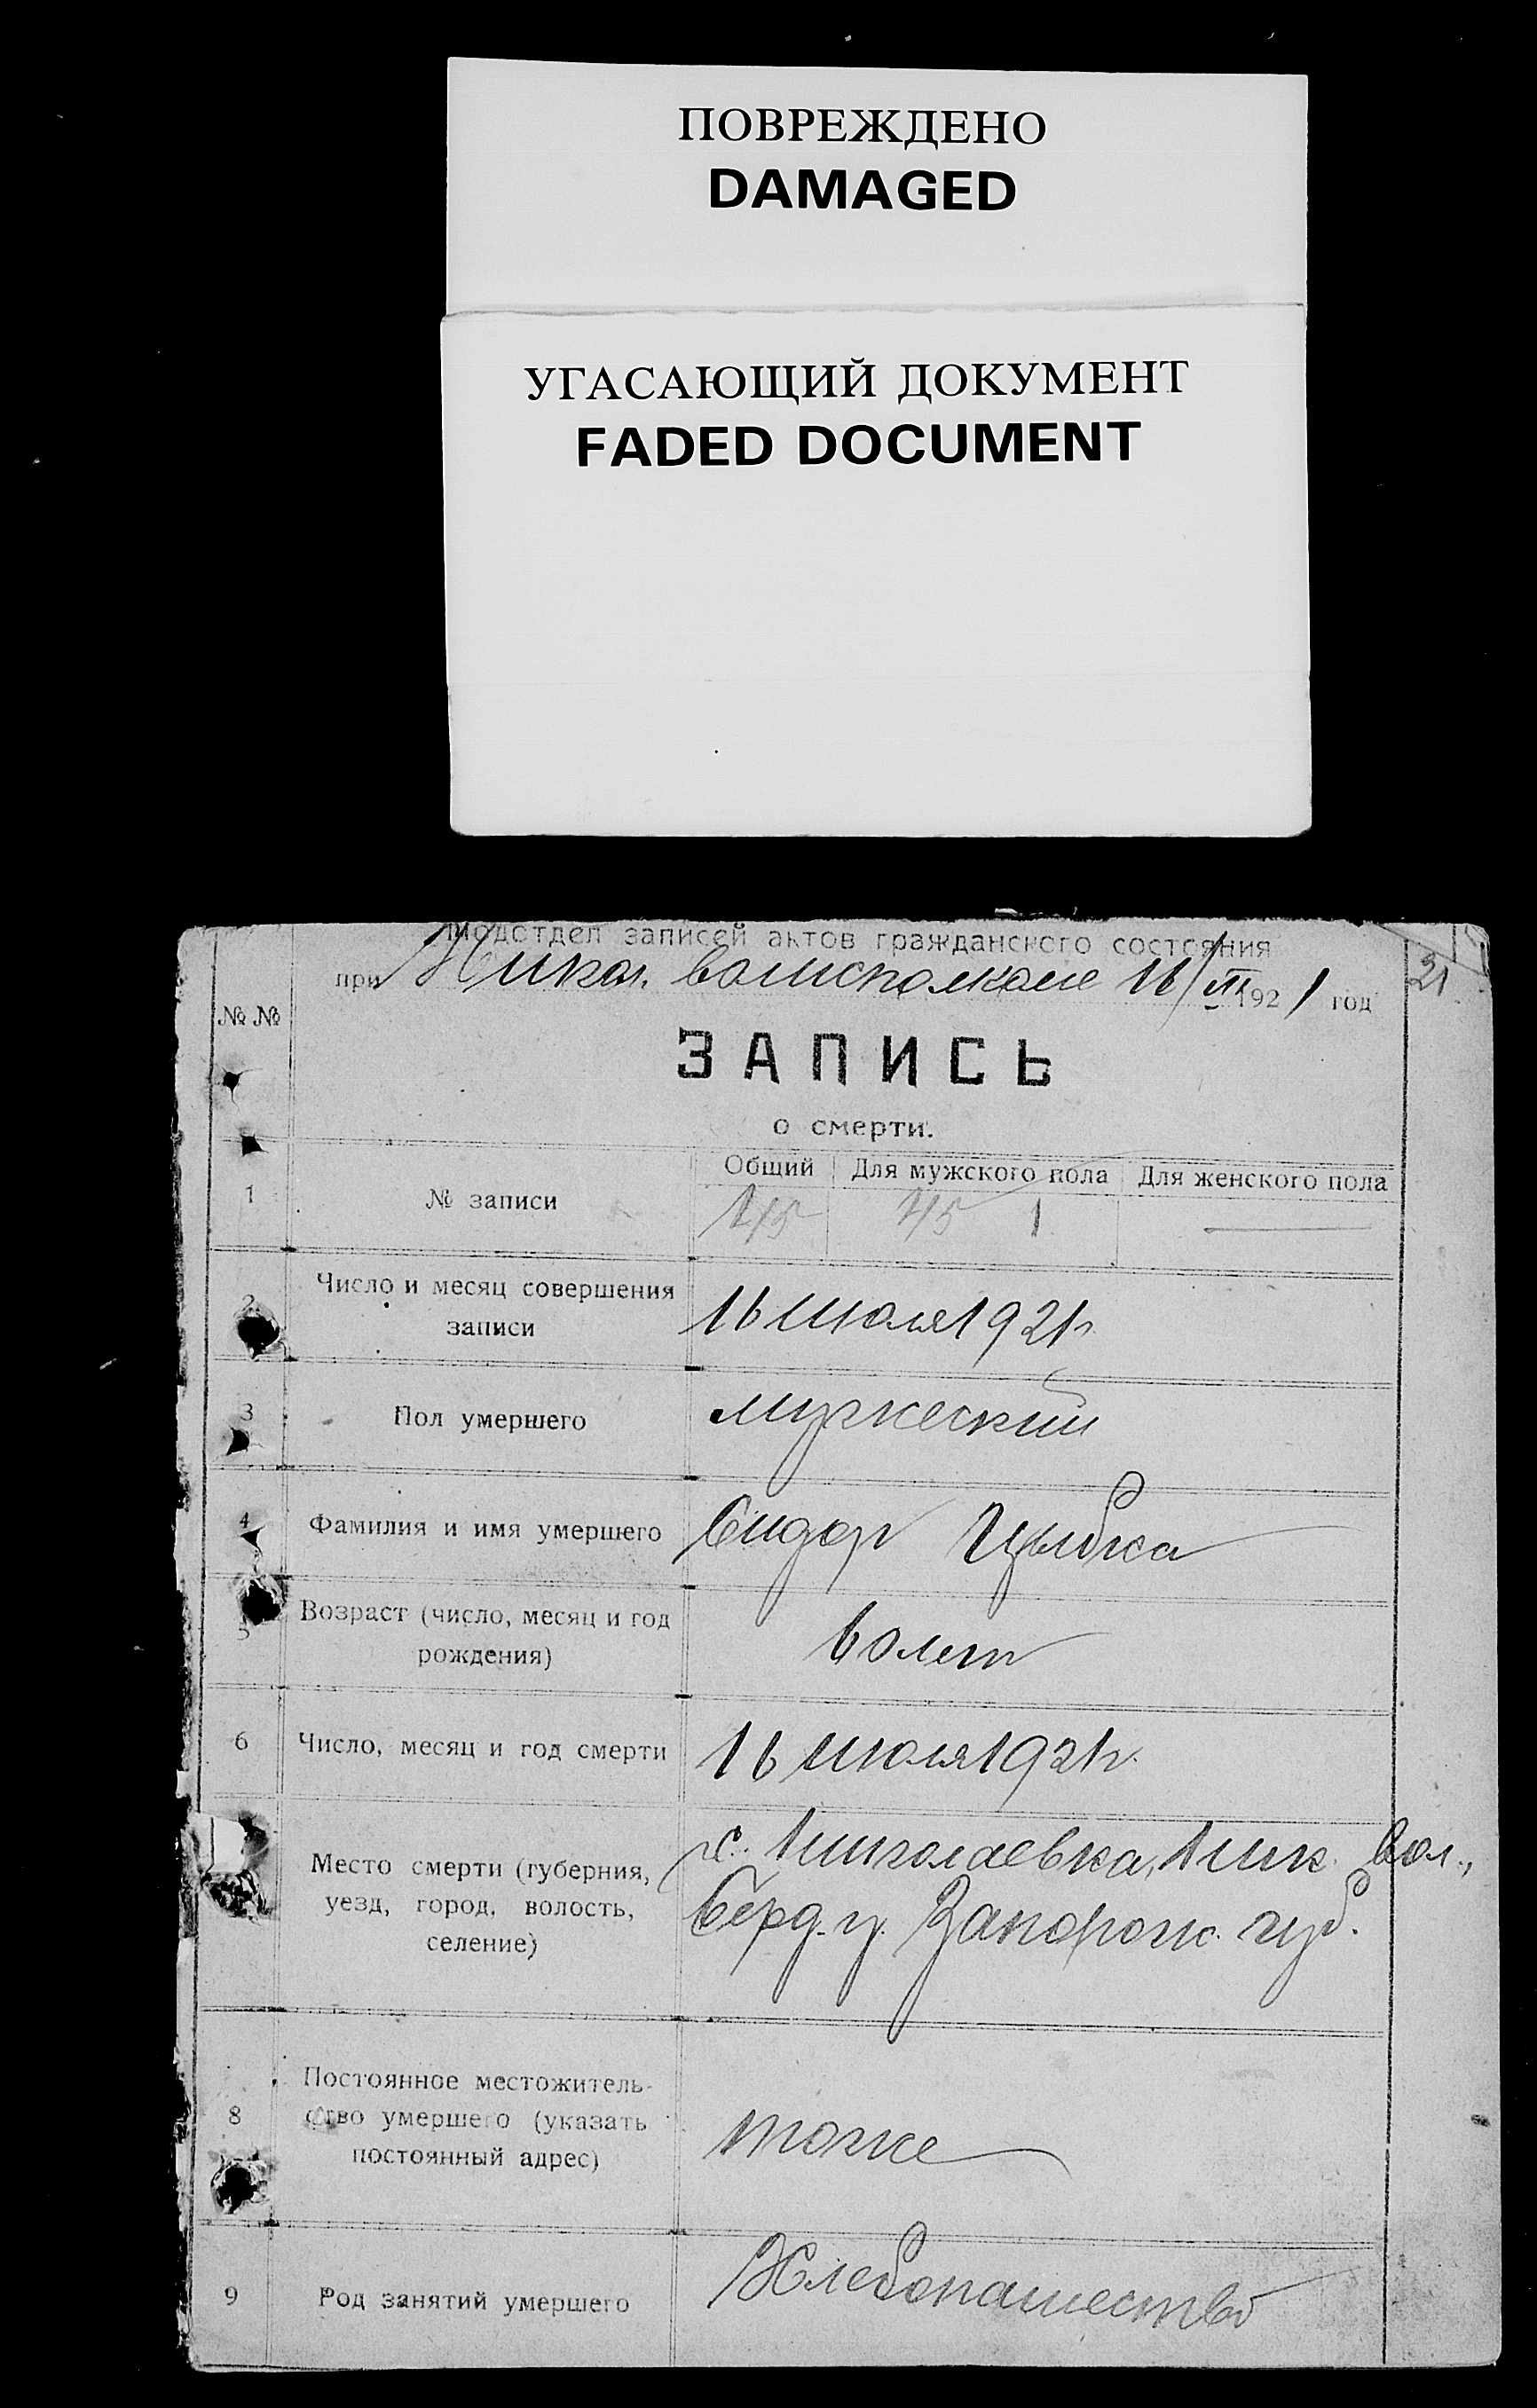 ПОВРЕЖДЕНО
DAMAGED
УГАСАЮЩИЙ ДОКУМЕНТ
FADED DOCUMENT
Подотдел записей актов гражданского состояния
21
при Никол. волисполкоме 16/VII 1921 год
№ №
ЗАПИСЬ
о смерти.
Общий Для мужского пола Для женского пола
1 № записи
Число и месяц совершения
2 записи 16 июля 1921 г.
3 Пол умершего мужеский
4 Фамилия и имя умершего Сидор Цыбка
Возраст (число, месяц и год
5 рождения) 60 лет
6 Число, месяц и год смерти 16 июля 1921 г.
с. Николаевка, Ник. вол.,
Место смерти (губерния,
уезд, город, волость, Берд. у. Запорож. губ.
селение)
Постоянное местожитель-
8 ство умершего (указать
постоянный адрес) тоже
9 Род занятий умершего Хлебопашество